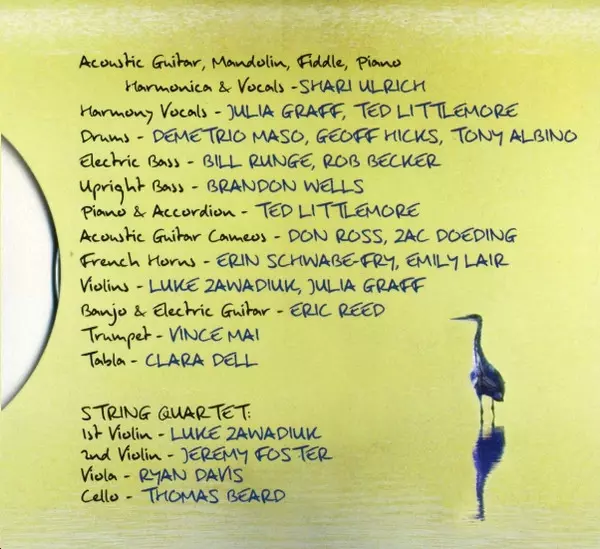 Acoustic Guitar, Mandolin, Fiddle, Piano
Harmonica & Vocals - SHARI ULRICH
Harmony Vocals - JULIA GRAFF, TED LITTLEMORE
Drums - DEMETRIO MASO, GEOFF HICKS, TONY ALBINO
Electric Bass - BILL RUNGE, ROB BECKER
Upright Bass - BRANDON WELLS
Piano & Accordion - TED LITTLEMORE
Acoustic Guitar Cameos - DON ROSS, ZAC DOEDING
French Horns - ERIN SCHWABE-FRY, EMILY LAIR
Violins - LUKE ZAWADIUK, JULIA GRAFF
Banjo & Electric Guitar - ERIC REED
Trumpet - VINCE MAI
Tabla - CLARA DELL
STRING QUARTET:
1st Violin - LUKE ZAWADIUK
2nd Violin - JEREMY FOSTER
Viola - RYAN DAVIS
Cello - THOMAS BEARD